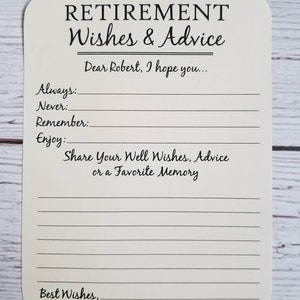 RETIREMENT
Wishes & Advice
Dear Robert, I hope you...
Always:
Never:
Remember:
Enjoy:
Share Your Well Wishes, Advice
or a Favorite Memory
Best Wishes,